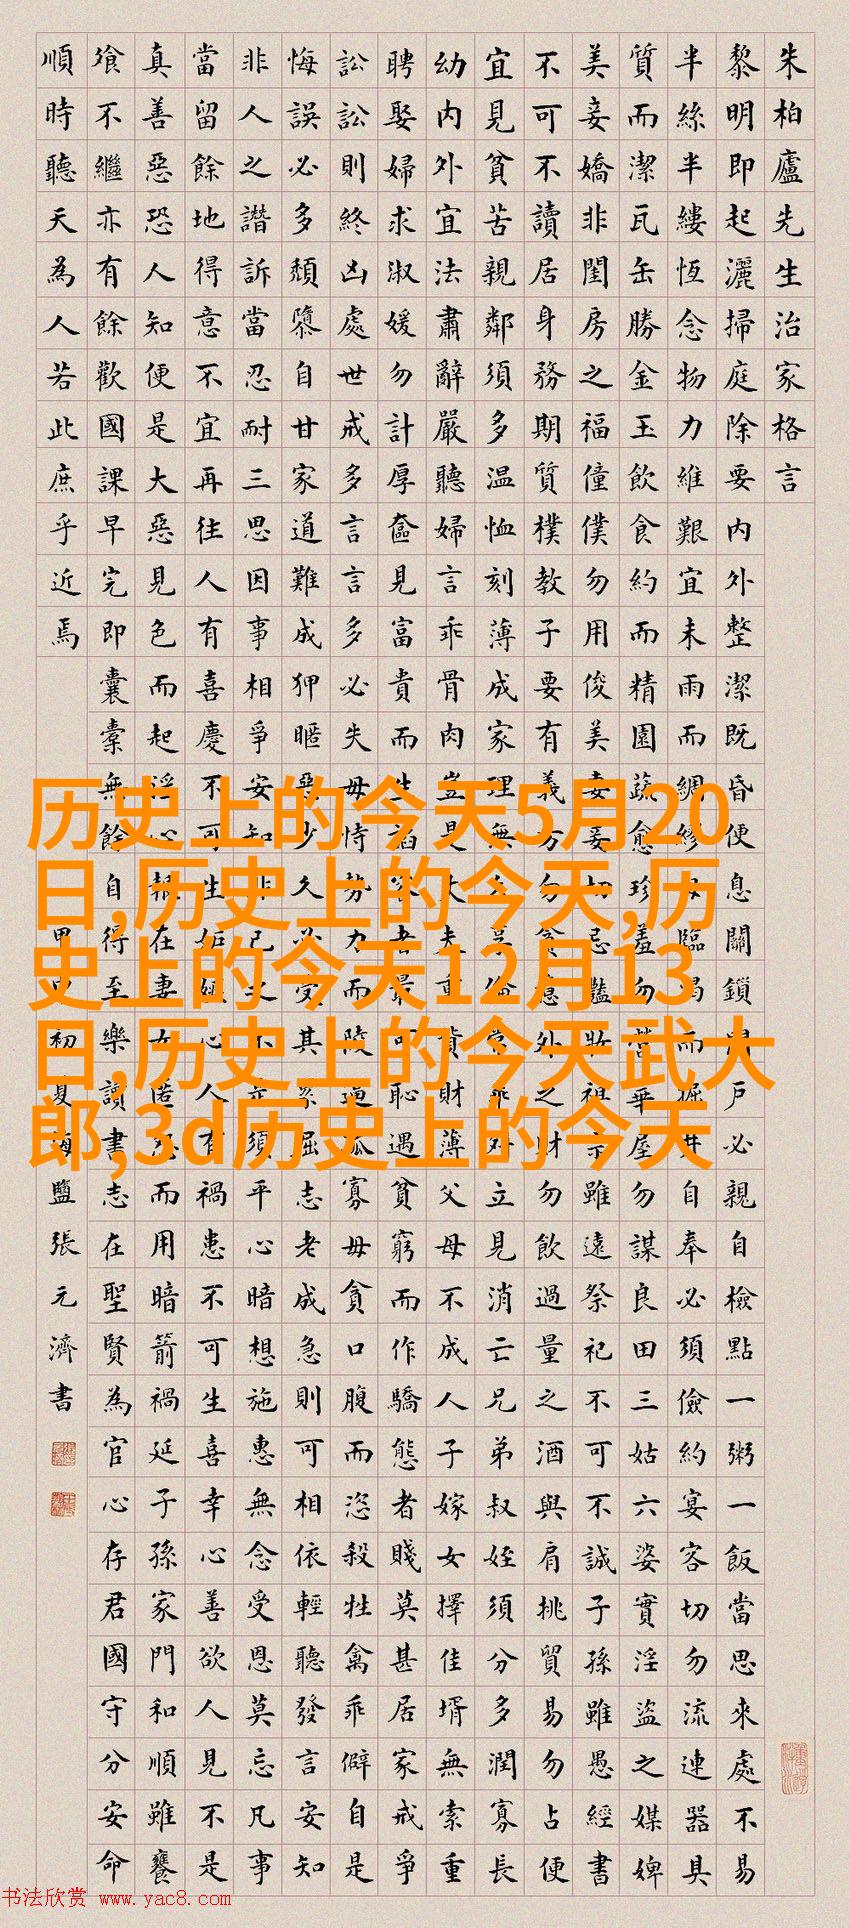 朱柏廬先生治家格言
黎明即起灑掃庭除要內外整潔既昏便息關鎖門戶必親自檢點一粥一飯當思來處不易
半絲半縷恆念物力維艱宜未雨而綢繆毋臨渴而掘井自奉必須儉約宴客切勿流連器具
質而潔瓦缶勝金玉飲食約而精園蔬愈珍羞勿營華屋勿謀良田三姑六婆實淫盜之媒婢
美妾嬌非閨房之福僮僕勿用俊美妻妾切忌豔妝祖宗雖遠祭祀不可不誠子孫雖愚經書
不可不讀居身務期質樸教子要有義方勿貪意外之財勿飲過量之酒與肩挑貿易勿占便
宜見貧苦親鄰須多温恤刻薄成家理無久享倫常乖舛立見消亡兄弟叔姪須分多潤寡長
幼內外宜法肅辭嚴聽婦言乖骨肉豈是丈夫重貲財薄父母不成人子嫁女擇佳壻無索重
聘娶婦求淑媛勿計厚奩見富貴而生諂容者最可恥遇貧窮而作驕態者賤莫甚居家戒爭
訟訟則終凶處世戒多言言多必失毋恃勢力而陵逼孤寡毋貪口腹而恣殺牲禽乖僻自是
悔誤必多頹隳自甘家道難成狎暱惡少久必受其累屈志老成急則可相依輕聽發言安知
非人之譖訴當忍耐三思因事相爭安知非己之不是須平心暗想施惠無念受恩莫忘凡事
當留餘地得意不宜再往人有喜慶不可生妬嫉心人有禍患不可生喜幸心善欲人見不是
真善惡恐人知便是大惡見色而起淫心報在妻女匿怨而用暗箭禍延子孫家門和順雖饔
飧不繼亦有餘歡國課早完即囊橐無餘自得至樂讀書志在聖賢為官心存君國守分安命
順時聽天為人若此庶乎近焉
甲申初夏海鹽張元濟書
历史上的今天5月20
日,历史上的今天,历
史上的今天12月13
日,历史上的今天武大
郎,3d历史上的今天
书法欣赏 www.yac8.com